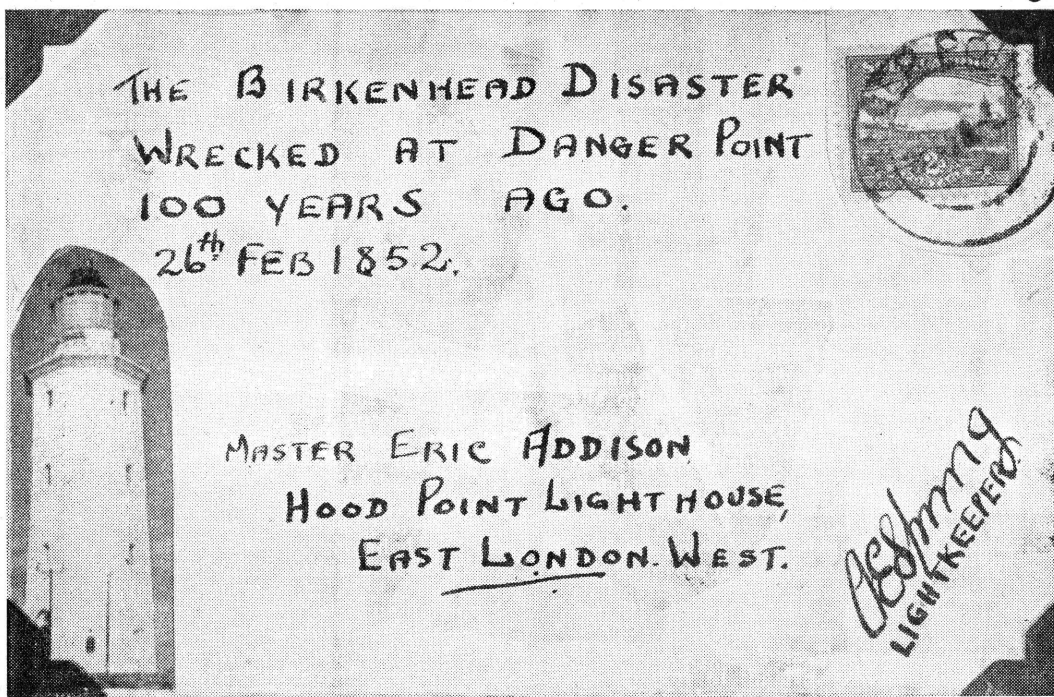 THE BIRKENHEAD DISASTER
WRECKED AT DANGER POINT
100 YEARS AGO.
26th FEB 1852.
MASTER ERIC ADDISON
HOOD POINT LIGHTHOUSE,
EAST LONDON. WEST.
LIGHTKEEPER